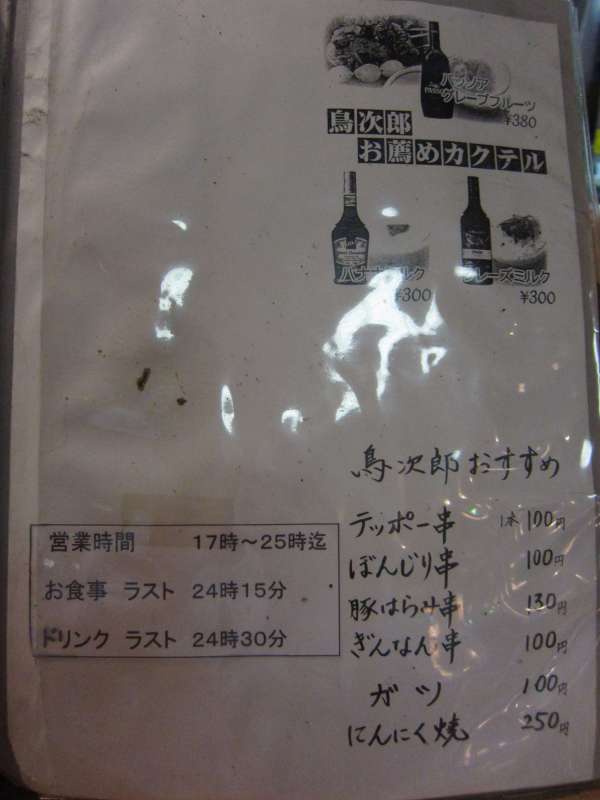 パッソア
グレープフルーツ
¥380
鳥次郎
お薦めカクテル
バナナミルク
¥300
フレーズミルク
¥300
鳥次郎おすすめ
テッポー串 1本 100円
ぼんじり串 100円
豚はらみ串 130円
ぎんなん串 100円
ガツ 100円
にんにく焼 250円
営業時間 17時～25時迄
お食事 ラスト 24時15分
ドリンク ラスト 24時30分